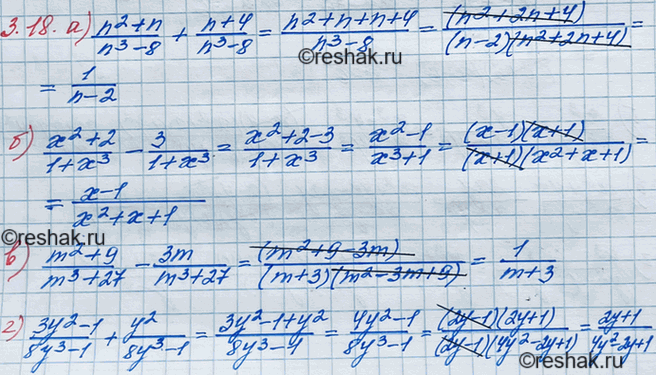 3.18. а) (n²+n)/(n³-8) + (n+4)/(n³-8) = (n²+n+n+4)/(n³-8) = (n²+2n+4)/((n-2)(n²+2n+4)) =
©reshak.ru
= 1/(n-2)
б) (x²+2)/(1+x³) - 3/(1+x³) = (x²+2-3)/(1+x³) = (x²-1)/(x³+1) = ((x-1)(x+1))/((x+1)(x²+x+1)) =
= (x-1)/(x²+x+1)
©reshak.ru
в) (m²+9)/(m³+27) - 3m/(m³+27) = (m²+9-3m)/((m+3)(m²-3m+9)) = 1/(m+3)
г) (3y²-1)/(8y³-1) + y²/(8y³-1) = (3y²-1+y²)/(8y³-1) = (4y²-1)/(8y³-1) = ((2y-1)(2y+1))/((2y-1)(4y²-2y+1)) = (2y+1)/(4y²-2y+1)
©reshak.ru